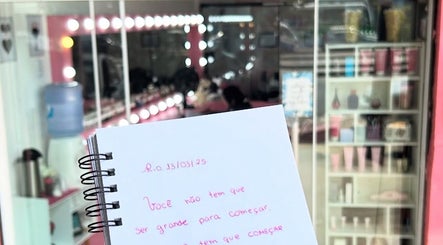 Rio, 13/03/25
Você não tem que
ser grande para começar
tem que começar